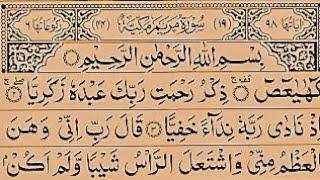 اٰیَاتُهَا ٩٨ (١٩) سُوْرَةُ مَرْيَمَ مَكِّيَّةٌ (٤٤) رُكُوْعَاتُهَا ٦
بِسْمِ اللّٰهِ الرَّحْمٰنِ الرَّحِيْمِ
كٓهٰيٰعٓصٓ ۚ ذِكْرُ رَحْمَتِ رَبِّكَ عَبْدَهٗ زَكَرِيَّا ۚ
اِذْ نَادٰى رَبَّهٗ نِدَآءً خَفِيًّا ٣ قَالَ رَبِّ اِنِّىْ وَهَنَ
الْعَظْمُ مِنِّىْ وَاشْتَعَلَ الرَّاْسُ شَيْبًا وَّلَمْ اَكُنْۢ